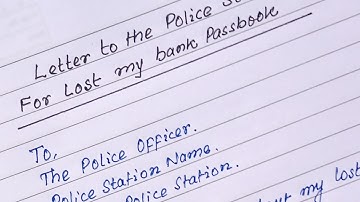 Letter to the Police
For Lost my bank Passbook
To,
The Police Officer.
Police Station Name.
Police Station.
my lost